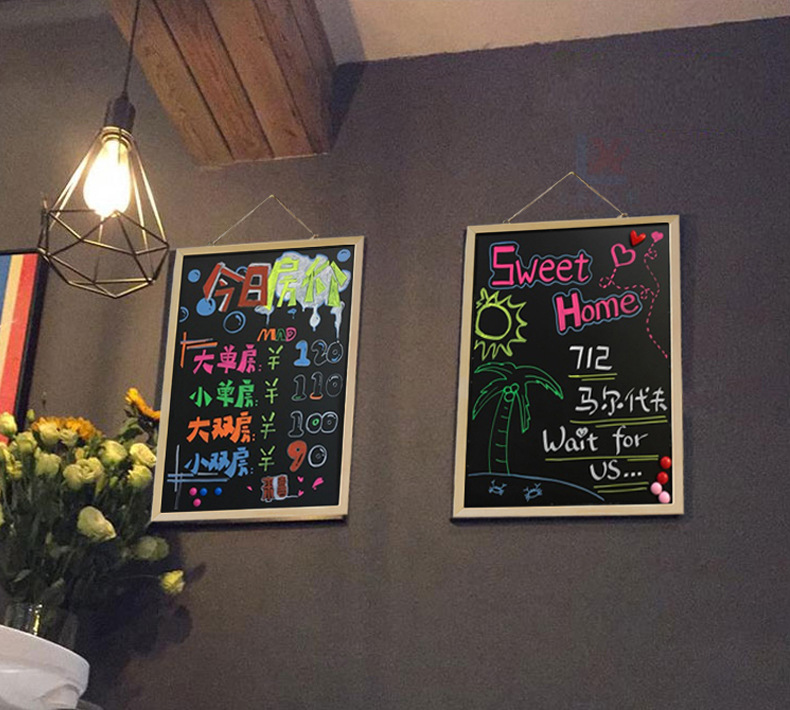 今日房价
大单房:¥ 120
小单房:¥ 110
大双房:¥ 100
小双房:¥ 90
Sweet
Home
712
马尔代夫
Wait for
US...